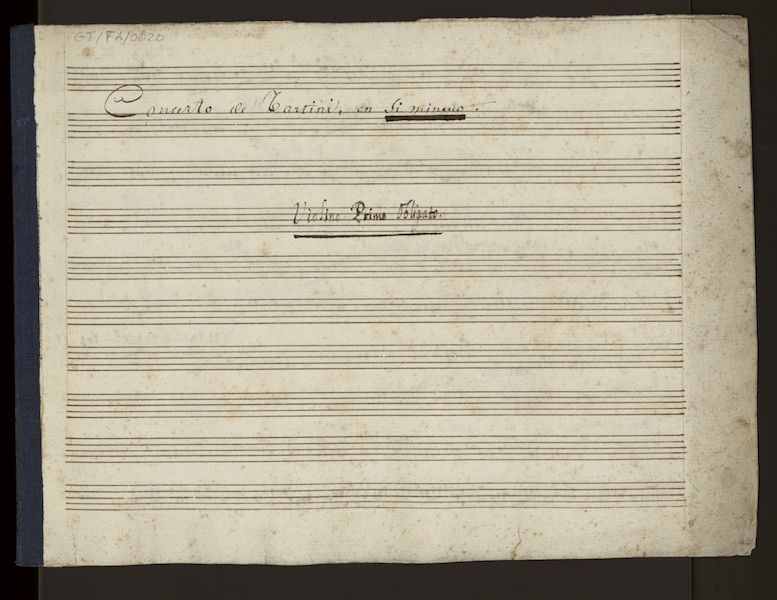 GT/FA/0020
Concerto de Tartini, en Si mineuo.
Violino Primo Obligato.